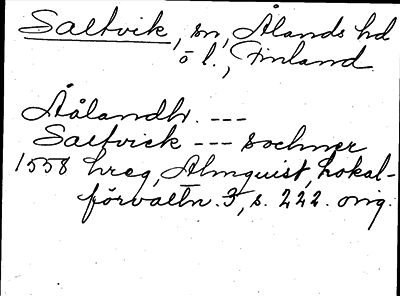 Saltvik, sn, Ålands hd
ö l., Finland
Åålandh. ---
Saltvick --- sochner
1558 hreg, Almquist, Lokal-
förvaltn. 3, s. 222. orig.